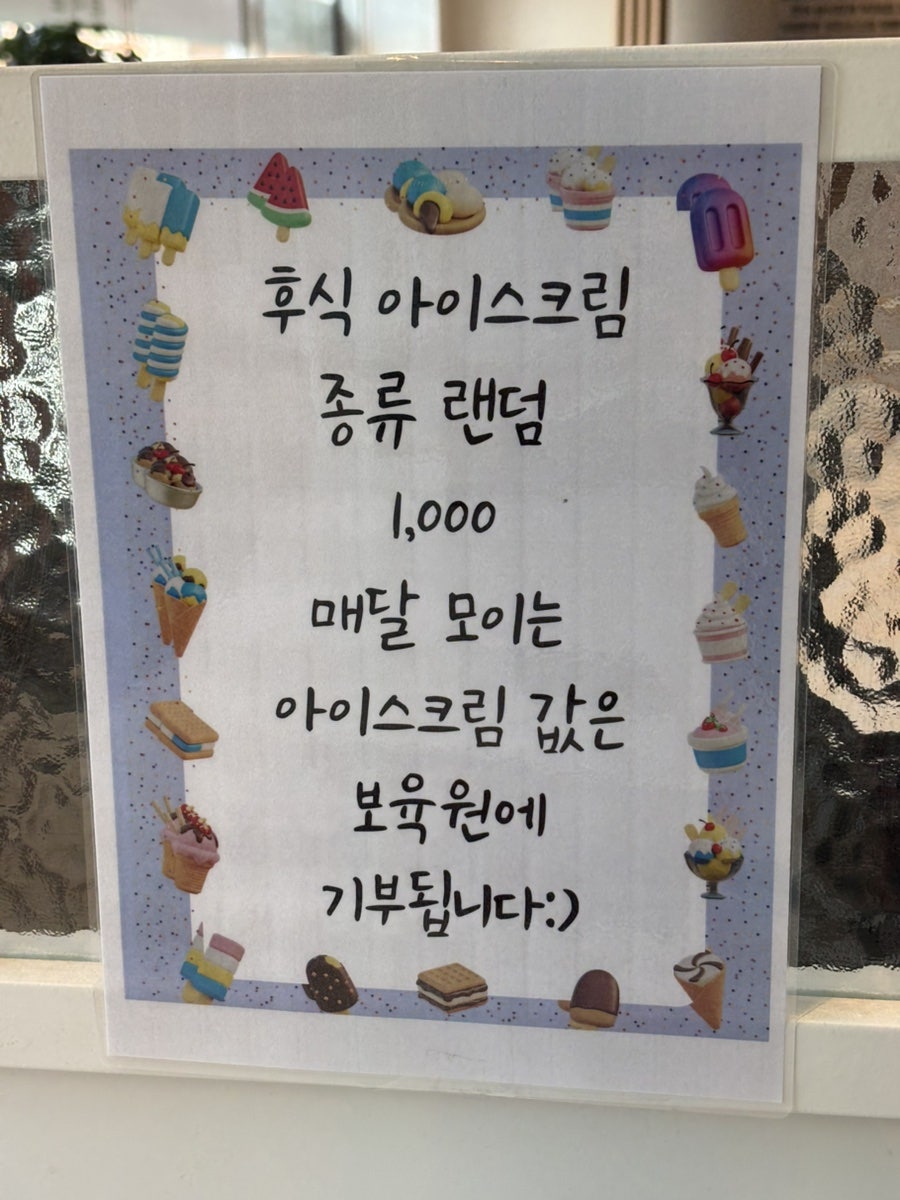 후식 아이스크림
종류 랜덤
1,000
매달 모이는
아이스크림 값은
보육원에
기부됩니다:)